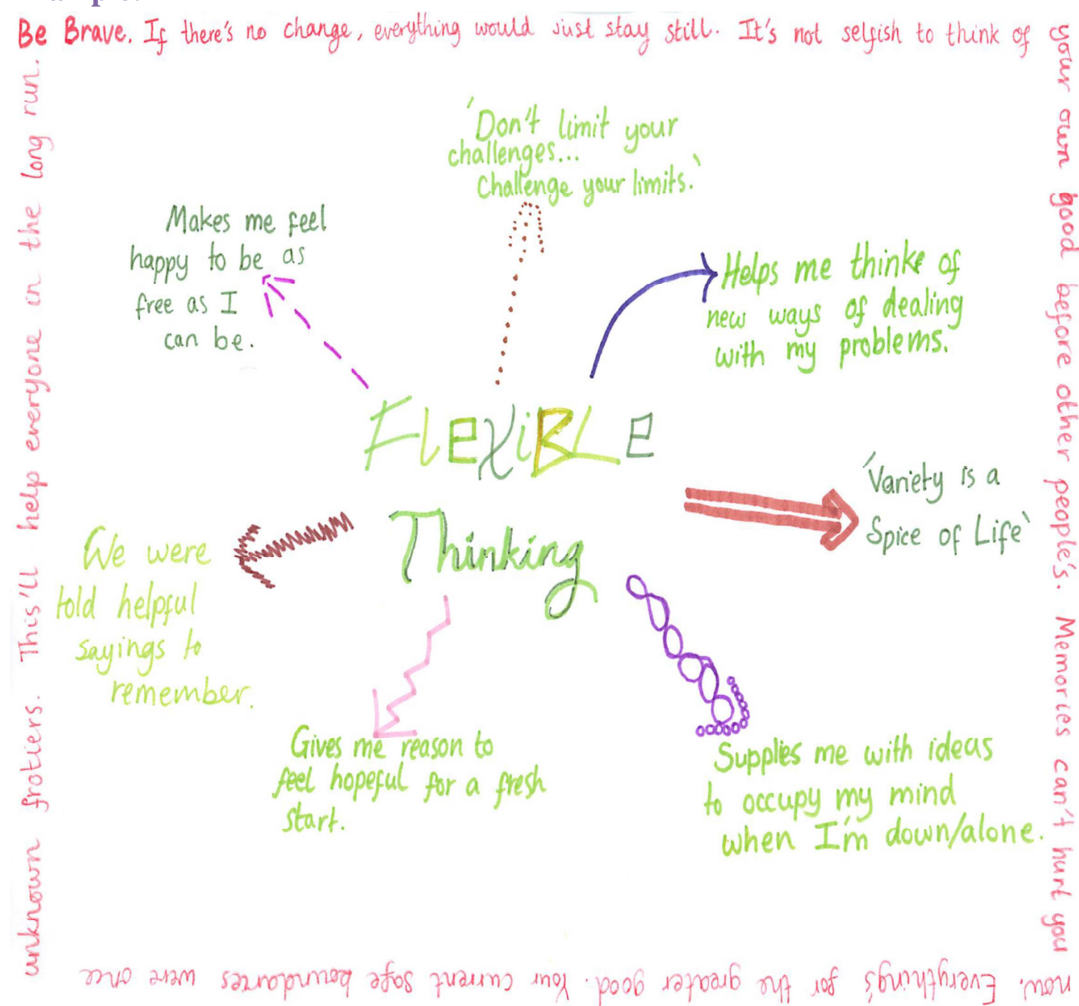 Be Brave. If there's no change, everything would just stay still. It's not selfish to think of
your own good before other people's. Memories can't hurt you
now. Everything's for the greater good. Your current safe boundaries were once
unknown frotiers. This'll help everyone in the long run.
'Don't limit your
challenges...
Challenge your limits.'
Makes me feel
happy to be as
free as I
can be.
Helps me thinke of
new ways of dealing
with my problems.
FLEXiBLE
Thinking
'Variety is a
Spice of Life'
We were
told helpful
sayings to
remember.
Gives me reason to
feel hopeful for a fresh
start.
Supplies me with ideas
to occupy my mind
when I'm down/alone.